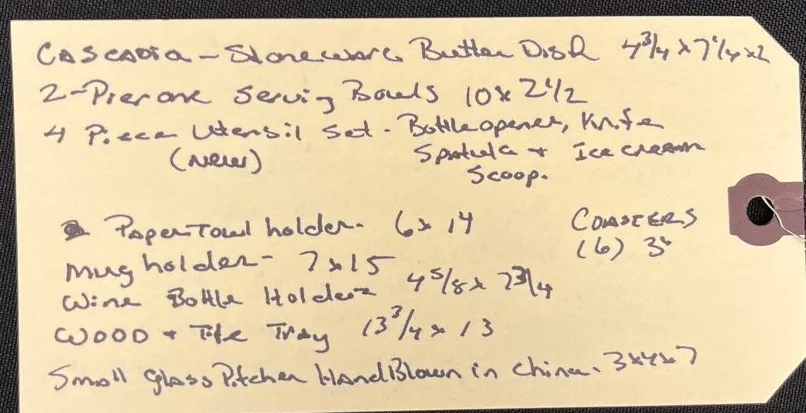 Cascadia - Stoneware Butter Dish 4 3/4 x 7 1/4 x 2
2-Pier one Serving Bowls 10 x 2 1/2
4 Piece Utensil set - Bottle opener, Knife
(New) Spatula + Ice cream
Scoop.
Paper Towl holder - 6 x 14
Coasters
(6) 3"
Mug holder - 7 x 15
Wine Bottle Holder 4 5/8 x 7 3/4
Wood + Tile Tray 13 3/4 x 13
Small Glass Pitcher Hand Blown in China. 3x4x7